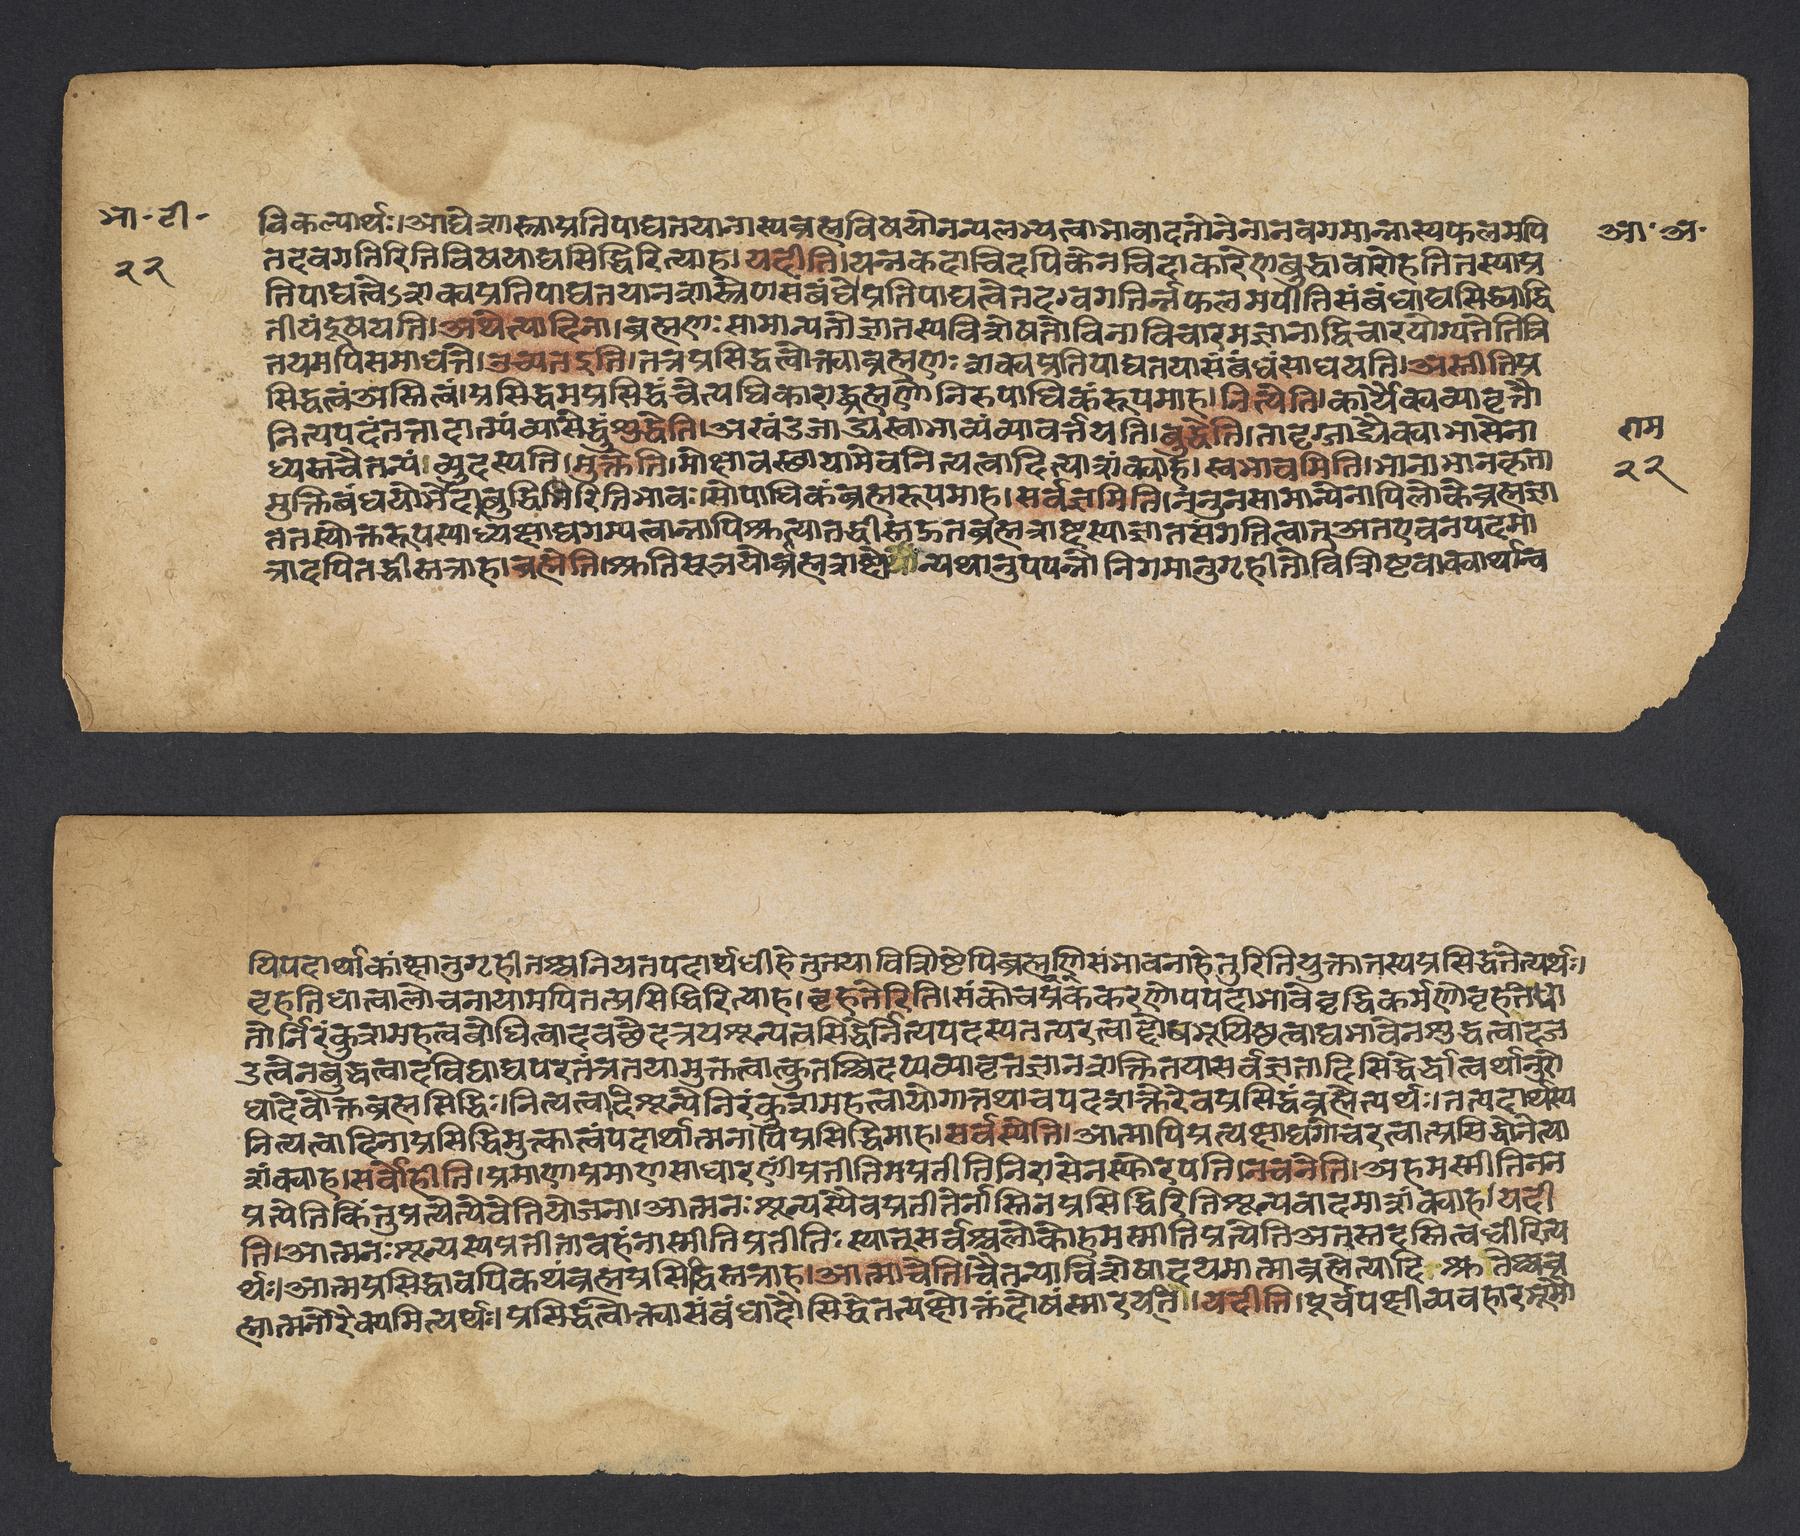 भा॰टी॰
२२
आ॰अ॰
राम
२२
विकल्पार्थः।आद्येशास्त्राप्रतिपाद्यतयानास्यब्रह्मविषयोनन्यलभ्यत्वाभावादतोनेनानवगमान्नास्यफलमपि
तदवगतिरितिविषयाद्यसिद्धिरित्याह।यदीति।यन्नकदाचिदपिकेनचिदाकारेणबुद्धावारोहतितस्याप्र
तिपाद्यत्वेऽशक्यप्रतिपाद्यतयानशास्त्रेणसंबंधोप्रतिपाद्यत्वेनतदवगतिर्न्नफलमपीतिसंबंधाद्यसिद्ध्याद्वि
तीयंदूषयति।अथेत्यादिना।ब्रह्मणःसामान्यतोज्ञातस्यविशेषतोविनाविचारमज्ञानाद्विचारयोग्यतेतित्रि
तयमपिसमाधत्ते।उच्यतइति।तत्रप्रसिद्धत्वोक्त्याब्रह्मणःशक्यप्रतिपाद्यतयासंबंधंसाधयति।अस्तीतिप्र
सिद्धत्वंअस्तित्वं।प्रसिद्धमप्रसिद्धंचेत्यधिकाराद्ब्रह्मणोनिरुपाधिकंरूपमाह।नित्येति।कार्यैक्यव्यावृत्तौ
नित्यपदंतत्तादात्म्यंव्यासेद्धुंशुद्धेति।अखंडजाड्यस्वाभाव्यंव्यावर्त्तयति।बुद्धेति।तादृग्जाड्यैक्याभासेना
ध्यस्तचैतन्यं।व्युदस्यति।मुक्तेति।मोक्षावस्थायामेवनित्यत्वादित्याशंक्याह।स्वभावमिति।भानाभानकृतो
मुक्तिबंधयोर्भेदोबुद्धिभिरितिभावः।सोपाधिकंब्रह्मरूपमाह।सर्वज्ञमिति।ननुनसामान्येनापिलोकेब्रह्मज्ञा
तंतस्योक्तरूपस्याध्यक्षाद्यगम्यत्वान्नापिश्रुत्यातद्धीस्तद्गतब्रह्मशब्दस्याज्ञातसंगतित्वात्अतएवनपदमा
त्रादपितद्धीस्तत्राह।ब्रह्मेति।श्रुतिसूत्रयोर्ब्रह्मशब्दोयोन्यथानुपपन्नोनिगमानुगृहीतोविशिष्टवाक्यार्थान्व
यिपदार्थाकांक्षानुगृहीतश्चनियतपदार्थधीहेतुतयाविशिष्टेपिब्रह्मणिसंभावनाहेतुरितियुक्तातस्यप्रसिद्धतेत्यर्थः।
बृहतिधात्वालोचनायामपितत्प्रसिद्धिरित्याह।बृहतेरिति।संकोचप्रकरणोपपदाभावेवृद्धिकर्मणोबृहतेर्धा
तोर्निरंकुशमहत्वबोधित्वादवछेदत्रयशून्यत्वसिद्धेर्नित्यपदस्यतत्परत्वाद्दोषभूयिष्ठत्वाद्यभावेनशुद्धत्वादज
डत्वेनबुद्धत्वादविद्याद्यपरतंत्रतयामुक्तत्वात्कुतश्चिदप्यव्यावृत्तज्ञानशक्तितयासर्वज्ञतादिसिद्धेर्द्धात्वर्थानुरो
धादेवोक्तब्रह्मसिद्धिः।नित्यत्वादिशून्येनिरंकुशमहत्वायोगात्तथाचपदशक्तेरेवप्रसिद्धंब्रह्मेत्यर्थः।तत्पदार्थस्य
नित्यत्वादिनाप्रसिद्धिमुत्क्वात्वंपदार्थात्मनापिप्रसिद्धिमाह।सर्वस्येति।आत्मापिप्रत्यक्षाद्यगोचरत्वात्प्रसिद्धोनेत्या
शंक्याह।सर्वोहीति।प्रमाणाप्रमाणसाधारणींप्रतीतिमप्रतीतिनिरासेनस्फोरयति।नचनेति।अहमस्मीतिनन
प्रत्येतिकिंतुप्रत्येत्येवेतियोजना।आत्मनःशून्यस्यैवप्रतीतेर्नास्तिनप्रसिद्धिरितिशून्यवादमाशंक्याह।यदी
ति।आत्मनःशून्यस्यप्रतीतावहंनास्मीतिप्रतीतिःस्यात्सर्वश्चलोकोहमस्मीतिप्रत्येतिअतस्तदस्तित्वधीरित्य
र्थः।आत्मप्रसिद्धावपिकथंब्रह्मप्रसिद्धिस्तत्राह।आत्माचेति।चैतन्याविशेषादयमात्माब्रह्मेत्यादिश्रुतेश्चब्र
ह्मात्मनोरैक्यमित्यर्थः।प्रसिद्धत्वोक्त्यासंबंधादौसिद्धेतत्पक्षोक्तंदोषंस्मारयति।यदीति।पूर्वपक्षीव्यवहारभूमौ